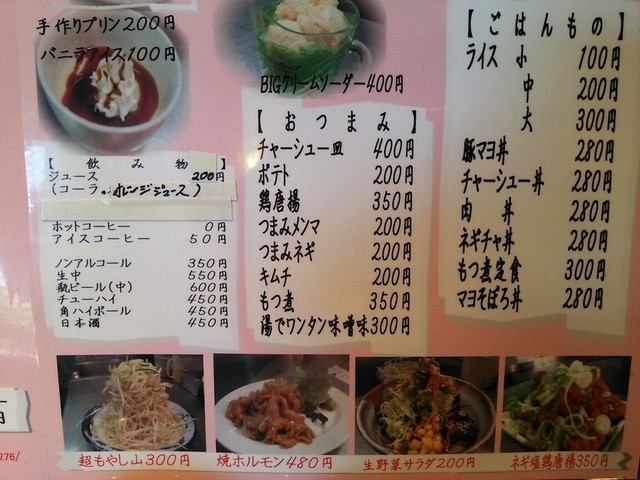 手作りプリン200円
バニラアイス100円
BIGクリームソーダー400円
【飲み物】
ジュース 200円
(コーラ、オレンジジュース)
ホットコーヒー 0円
アイスコーヒー 50円
ノンアルコール 350円
生中 550円
瓶ビール(中) 600円
チューハイ 450円
角ハイボール 450円
日本酒 450円
【おつまみ】
チャーシュー皿 400円
ポテト 200円
鶏唐揚 350円
つまみメンマ 200円
つまみネギ 200円
キムチ 200円
もつ煮 350円
湯でワンタン味噌味300円
【ごはんもの】
ライス 小 100円
中 200円
大 300円
豚マヨ丼 280円
チャーシュー丼 280円
肉丼 280円
ネギチャ丼 280円
もつ煮定食 300円
マヨそぼろ丼 280円
超もやし山300円
焼ホルモン480円
生野菜サラダ200円
ネギ塩鶏唐揚350円
円
276/